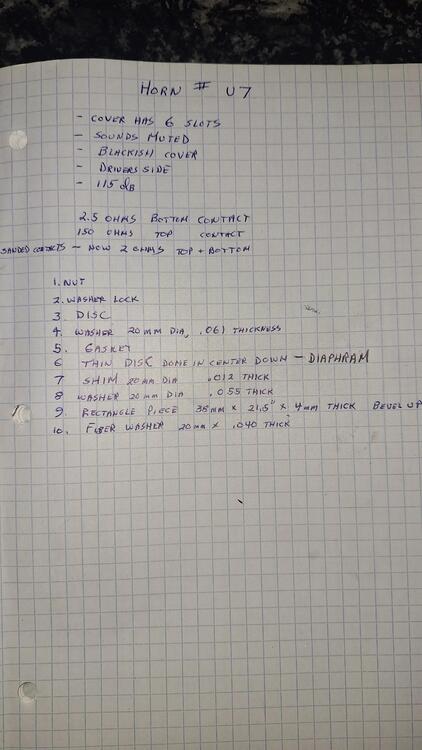 HORN # U7
- COVER HAS 6 SLOTS
- SOUNDS MUTED
- BLACKISH COVER
- DRIVERS SIDE
- 115 dB
2.5 OHMS BOTTOM CONTACT
150 OHMS TOP CONTACT
SANDED CONTACTS - NOW 2 OHMS TOP + BOTTOM
1. NUT
2. WASHER LOCK
3 DISC
4. WASHER 20 MM DIA, .061 THICKNESS
5. GASKET
6 THIN DISK DOME IN CENTER DOWN - DIAPHRAM
7 SHIM 20 MM DIA .012 THICK
8 WASHER 20 MM DIA .055 THICK
9 RECTANGLE PIECE 35mm x 21.5" x 4mm THICK BEVEL UP
10. FIBER WASHER 20mm x .040 THICK